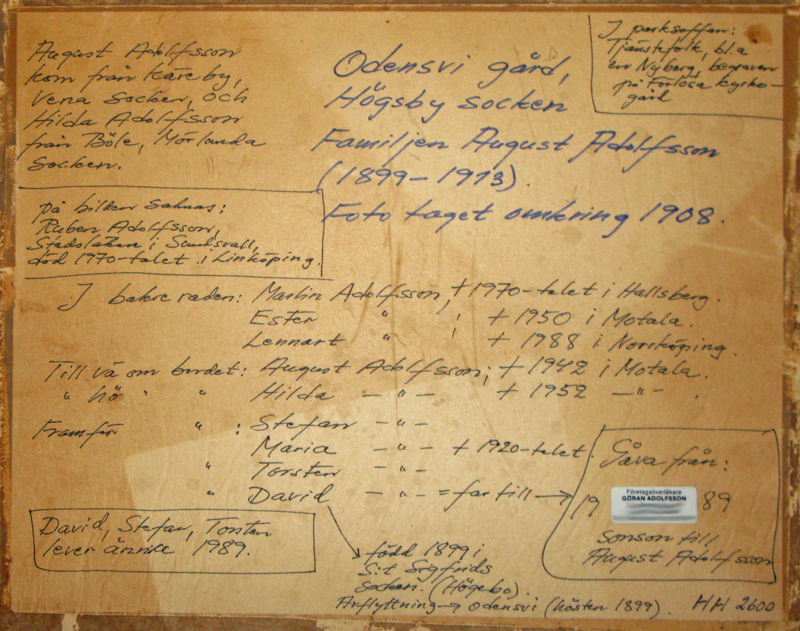 August Adolfsson
kom från Käreby,
Vena Socken, och
Hilda Adolfsson
från Böle, Mörlunda
Socken.
Odensvi gård,
Högsby socken
Familjen August Adolfsson
(1899-1913).
Foto taget omkring 1908.
I parksoffan:
Tjänstefolk, bl.a
en Nyberg, begraven
på Förlösa kyrko-
gård
På bilden saknas:
Ruben Adolfsson,
Stadsläkare i Sundsvall,
död 1970-talet i Linköping.
I bakre raden: Martin Adolfsson, + 1970-talet i Hallsberg.
Ester " , + 1950 i Motala.
Lennart " , + 1988 i Norrköping.
Till vä om bordet: August Adolfsson; + 1942 i Motala.
" hö " " Hilda - " - + 1952 - " - .
Framför " : Stefan - " -
Maria - " - + 1920-talet.
" Torsten - " -
" David - " - = far till →
Gåva från:
Företagsöverläkare
GÖRAN ADOLFSSON
19 89
Sonson till
August Adolfsson
David, Stefan, Torsten
lever ännu 1989.
född 1899 i
S:t Sigfrids
Socken. (Högebo).
Avflyttning → Odensvi (hösten 1899). HH 2600